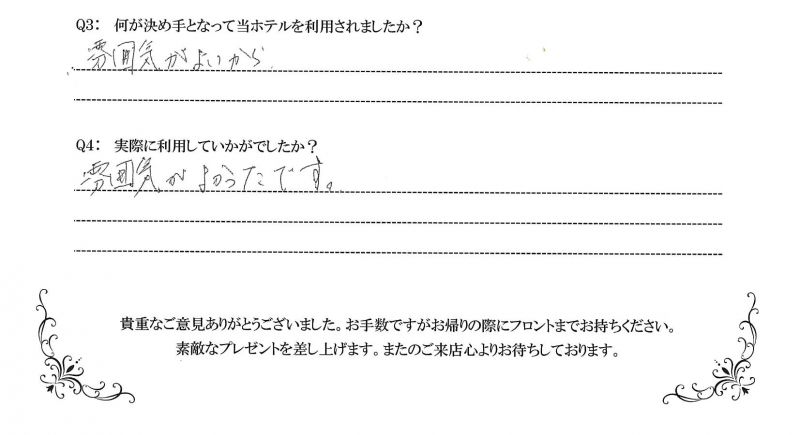 Q3： 何が決め手となって当ホテルを利用されましたか？
雰囲気がよいから
Q4： 実際に利用していかがでしたか？
雰囲気がよかったです。
貴重なご意見ありがとうございました。お手数ですがお帰りの際にフロントまでお持ちください。
素敵なプレゼントを差し上げます。またのご来店心よりお待ちしております。